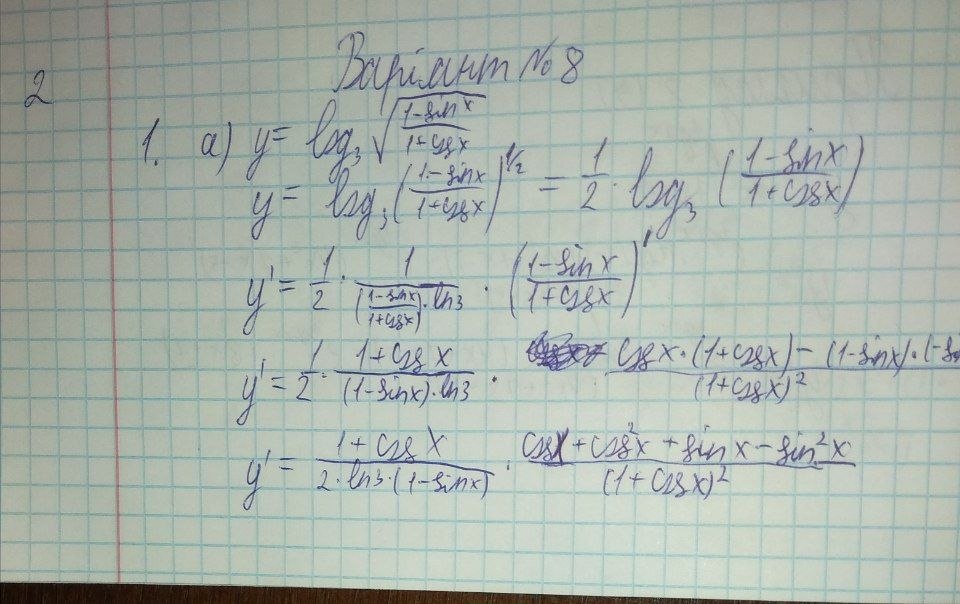 2
Варіант №8
1. а) y = log₃ √((1-sin x)/(1+cos x))
y = log₃ ((1-sin x)/(1+cos x))^(1/2) = 1/2 · log₃ ((1-sin x)/(1+cos x))
y' = 1/2 · 1/(((1-sin x)/(1+cos x)) · ln3) · ((1-sin x)/(1+cos x))'
y' = 1/2 · (1+cos x)/((1-sin x) · ln3) · (cos x · (1+cos x) - (1-sin x) · (-s
y' = (1+cos x)/(2·ln3·(1-sin x)) · (cos x + cos²x + sin x - sin²x)/((1+cos x)²)